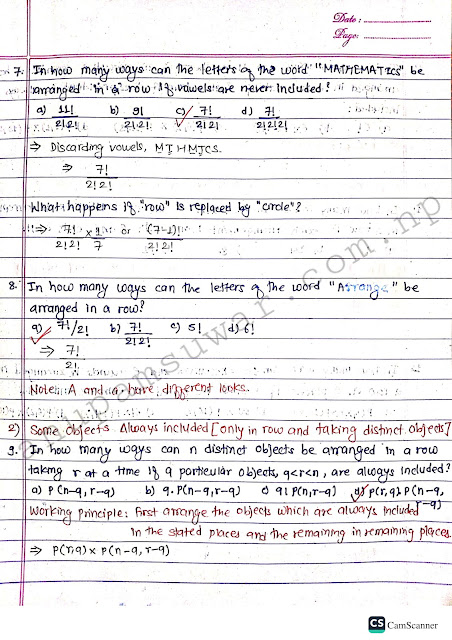 Date:
Page:
7. In how many ways can the letters of the word "MATHEMATICS" be
arranged in a row if vowels are never included?
a) 11!/2!2! b) 9!/2!2! c) 7!/2!2! d) 7!/2!2!2!
⇒ Discarding vowels, MTHMTCS.
⇒ 7!/2!2!
What happens if "row" is replaced by "circle"?
⇒ 7!/2!2! × 1/7 or (7-1)!/2!2!
8. In how many ways can the letters of the word "Arrange" be
arranged in a row?
a) 7!/2! b) 7!/2!2! c) 5! d) 6!
⇒ 7!/2!
Note: A and a have different looks.
2) Some objects Always included [only in row and taking distinct objects]
9. In how many ways can n distinct objects be arranged in a row
taking r at a time if q particular objects, q<r<n, are always included?
a) P(n-q, r-q) b) q. P(n-q, r-q) c) q! P(n, r-q) d) P(r, q). P(n-q, r-q)
Working principle: First arrange the objects which are always included
in the stated places and the remaining in remaining places.
⇒ P(r, q) × P(n-q, r-q)
anupamsuwar.com.np
CS CamScanner